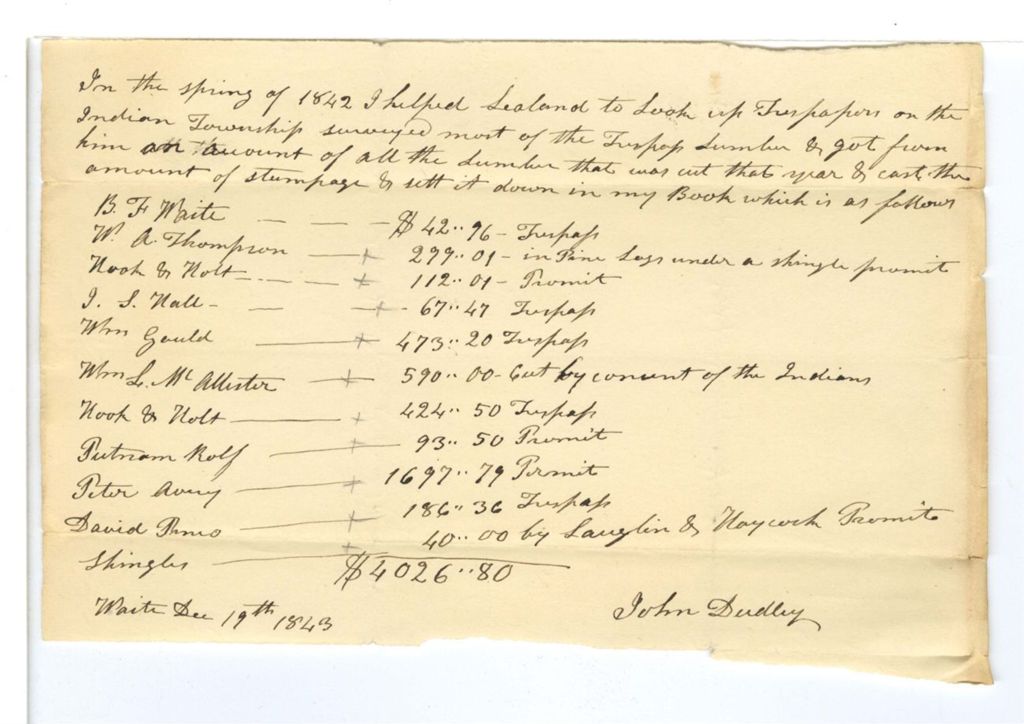 In the spring of 1842 I helped Lealand to Look up Trespassors on the
Indian Township surveyed most of the Trespass Lumber & got from
him an account of all the Lumber that was cut that year & cast the
amount of stumpage & sett it down in my Book which is as follows
B. F Waite — — $42..96 - Trespass
W. A. Thompson — + 299..01 - in Pine Logs under a shingle promit
Hook & Holt — + 112..01 - Promit
J. S. Hall - — + - 67..47 Trespass
Wm Gould — + 473..20 Trespass
Wm L. Mc Allister — + 590..00 - Cut by consent of the Indians
Hook & Holt — + 424..50 Trespass
Putnam Rolf — + 93..50 Promit
Peter Avery — + 1697..79 Permit
David — + 186..36 Trespass
Shingles — + 40..00 by Lauglin & Haycock Promit
$4026..80
Waite Dec 19th 1843 John Dudley